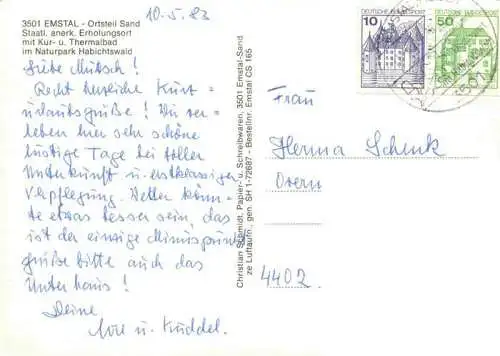 10.5.83
3501 EMSTAL - Ortsteil Sand
Staatl. anerk. Erholungsort
mit Kur- u. Thermalbad
im Naturpark Habichtswald
Liebe Mutsch!
Recht herzliche Kurz-
urlaubsgrüße! Wir ver-
leben hier sehr schöne
lustige Tage bei toller
Unterkunft u. erstklassiger
Verpflegung. Wetter könn-
te etwas besser sein, das
ist der einzige Minuspunkt
grüße bitte auch das
Unterhaus!
Deine
u. Kuddel.
Christian Schmidt, Papier- u. Schreibwaren, 3501 Emstal-Sand
ze Luftaufn., gen. SH 1-72687 - Bestellnr. Emstal CS 165
DEUTSCHE BUNDESPOST
10
DEUTSCHE BUNDESPOST
50
Frau
Herma Schenk
4402